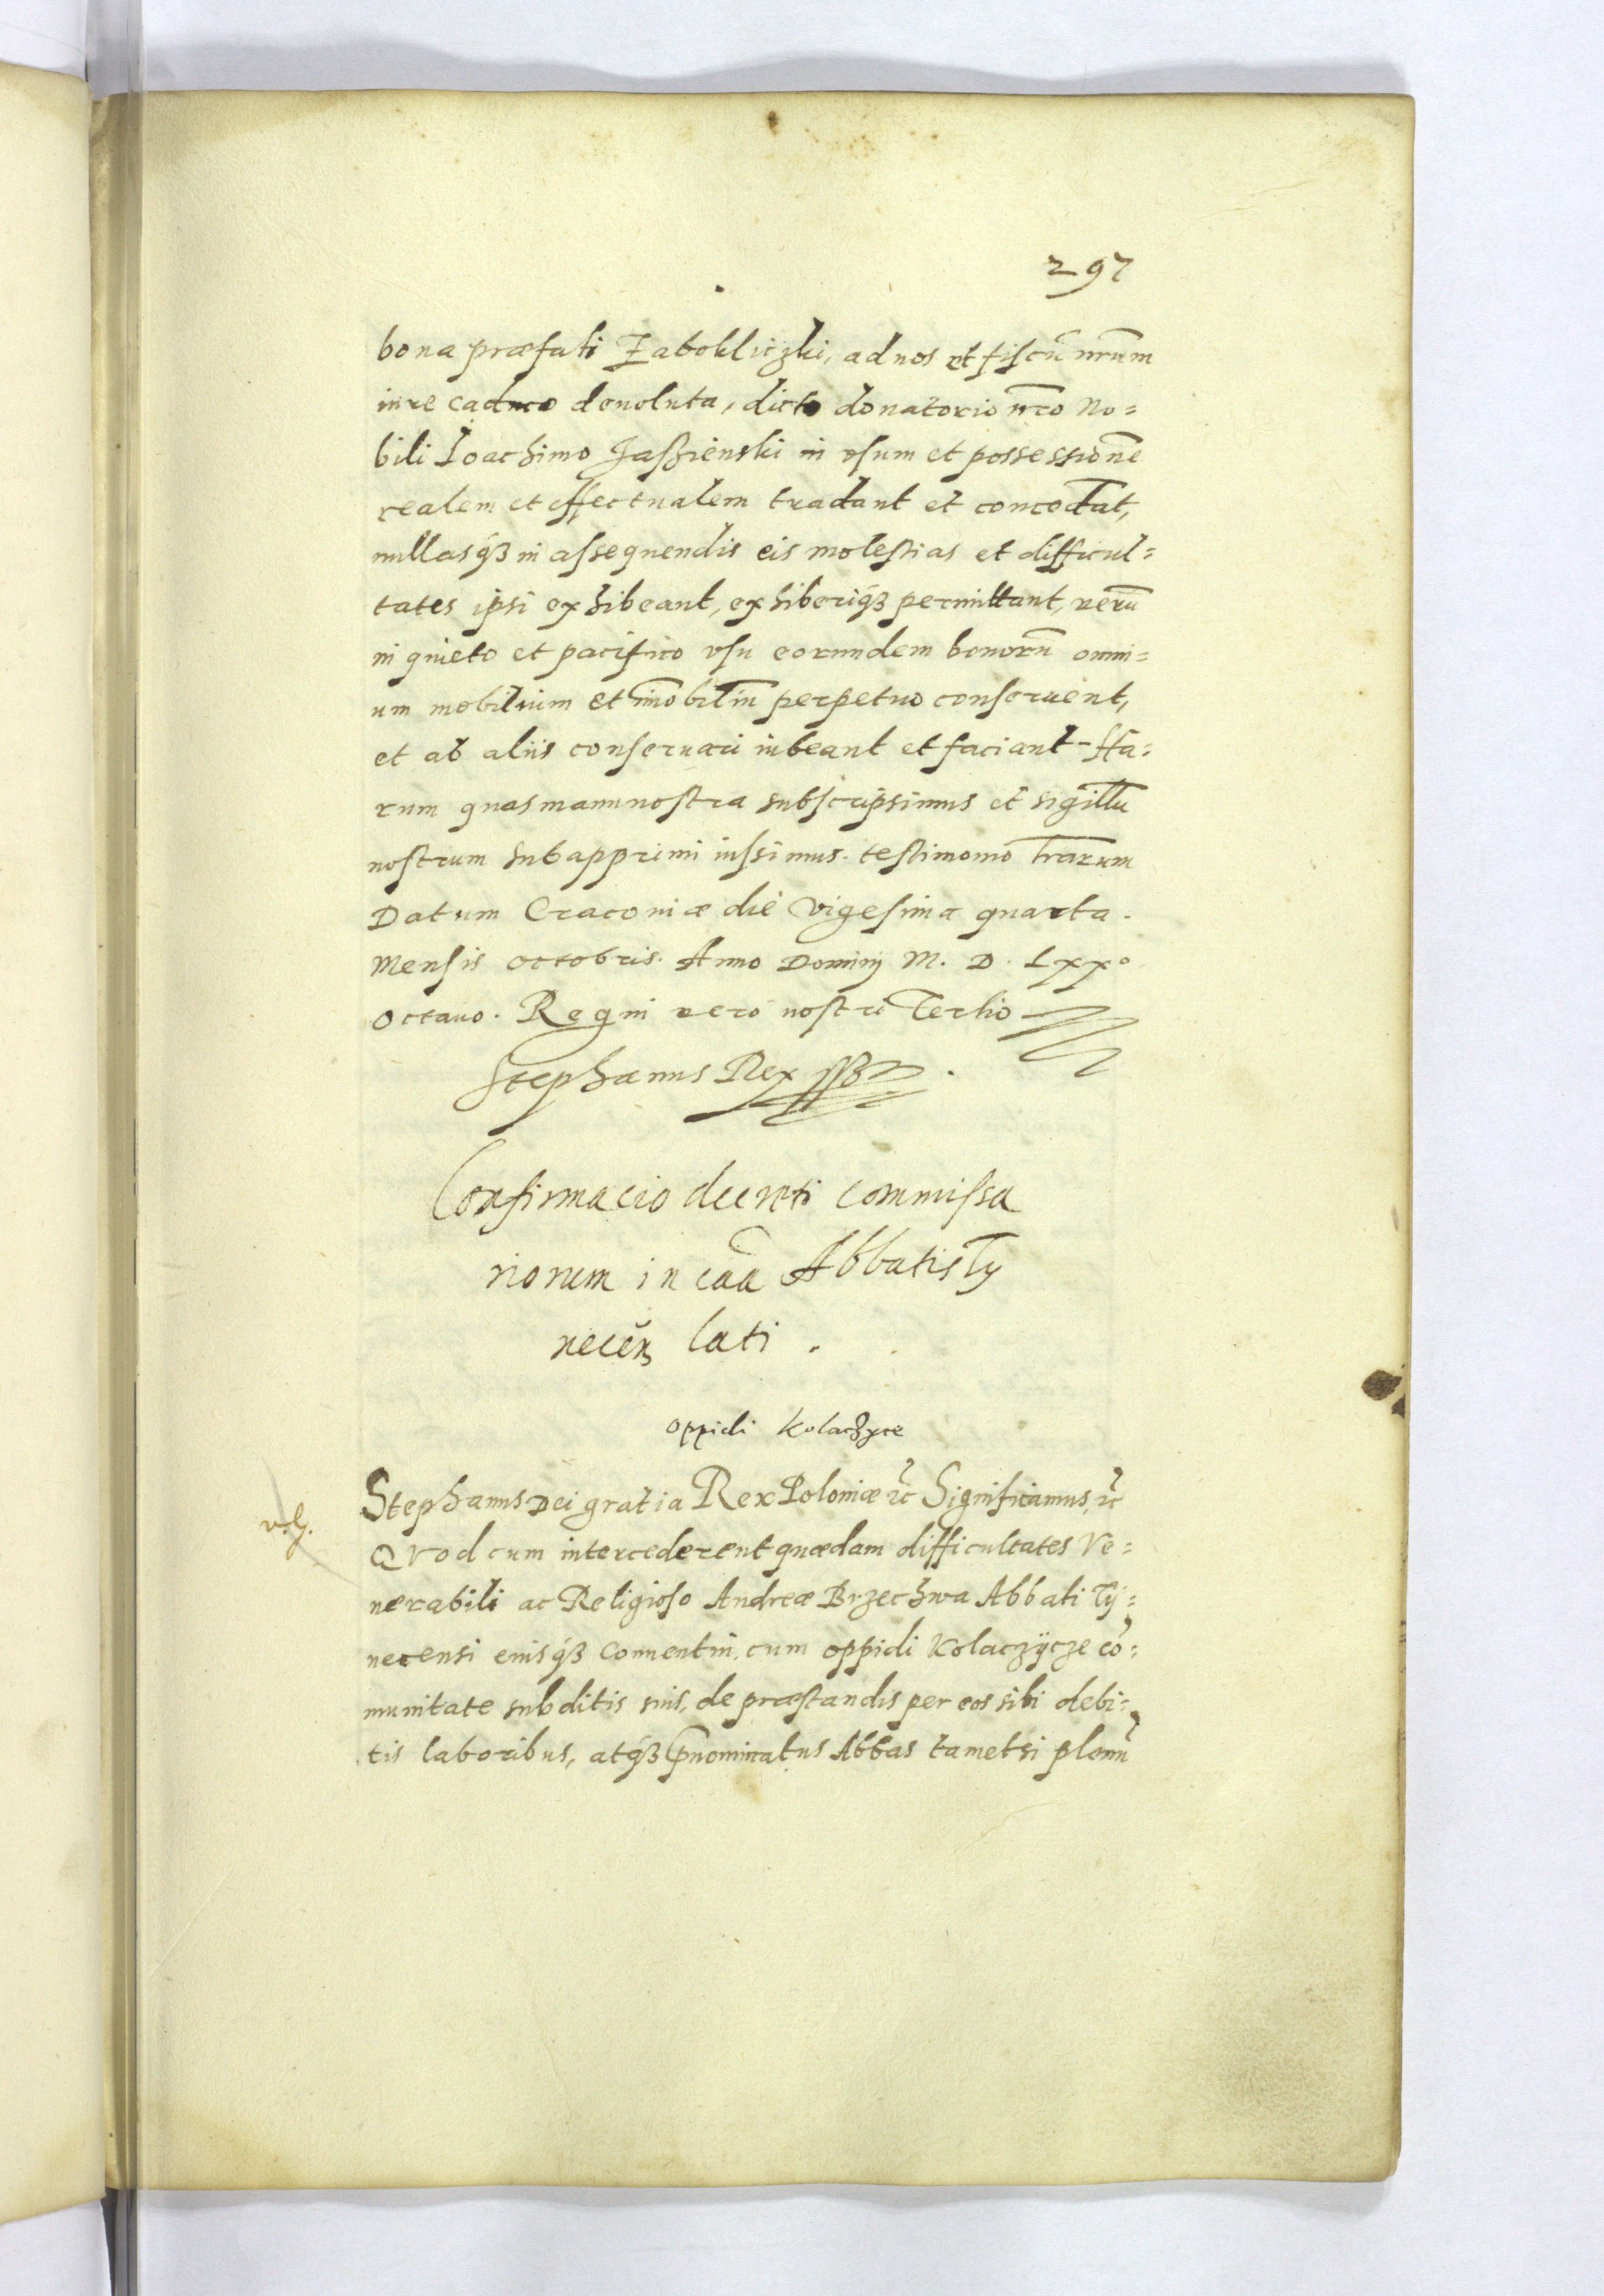 297
bona præfati Żabokliczki, ad nos et fiscū nr̄um
iure caduco deuoluta, dicto donatorio nr̄o No=
bili Ioachimo Jasżienski in vsum et possessionē
realem et effectualem tradant et concedāt,
nullasq́ꝫ in assequendis eis molestias et difficul=
tates ipsi exhibeant, exhiberiq́ꝫ permittant, verū
in quieto et pacifico vsu eorundem bonorū omni=
um mobilium et im̄obiliū perpetuo conseruent,
et ab aliis conseruari iubeant et faciant Ha=
rum quas manu nostra subscripsimus et sigillū
nostrum subapprimi iussimus. testimonio lr̄arum
Datum Cracouiæ die vigesima quarta.
Mensis octobris. Anno Dominij M. D. Lxxº
octauo. Regni vero nostri Tertio
Stephanus Rex ssz.
Confirmacio decreti Commissa
riorum in cāā Abbatis Ty
necēn lati.
oppidi Kolaczyce
v.g.
Stephanus Dei gratia Rex Poloniæ ꝛc̄ Significamus, ꝛc̄
Qvod cum intercederent quædam difficultates Ve=
nerabili ac Religioso Andreæ Brzechwa Abbati Tÿ=
necensi eiusq́ꝫ Conuentui, cum oppidi Kolaczÿcze cō=
munitate subditis suis, de præstandis per eos sibi debi=
tis laboribus, atq́ꝫ p̄nominatus Abbas tametsi plenū